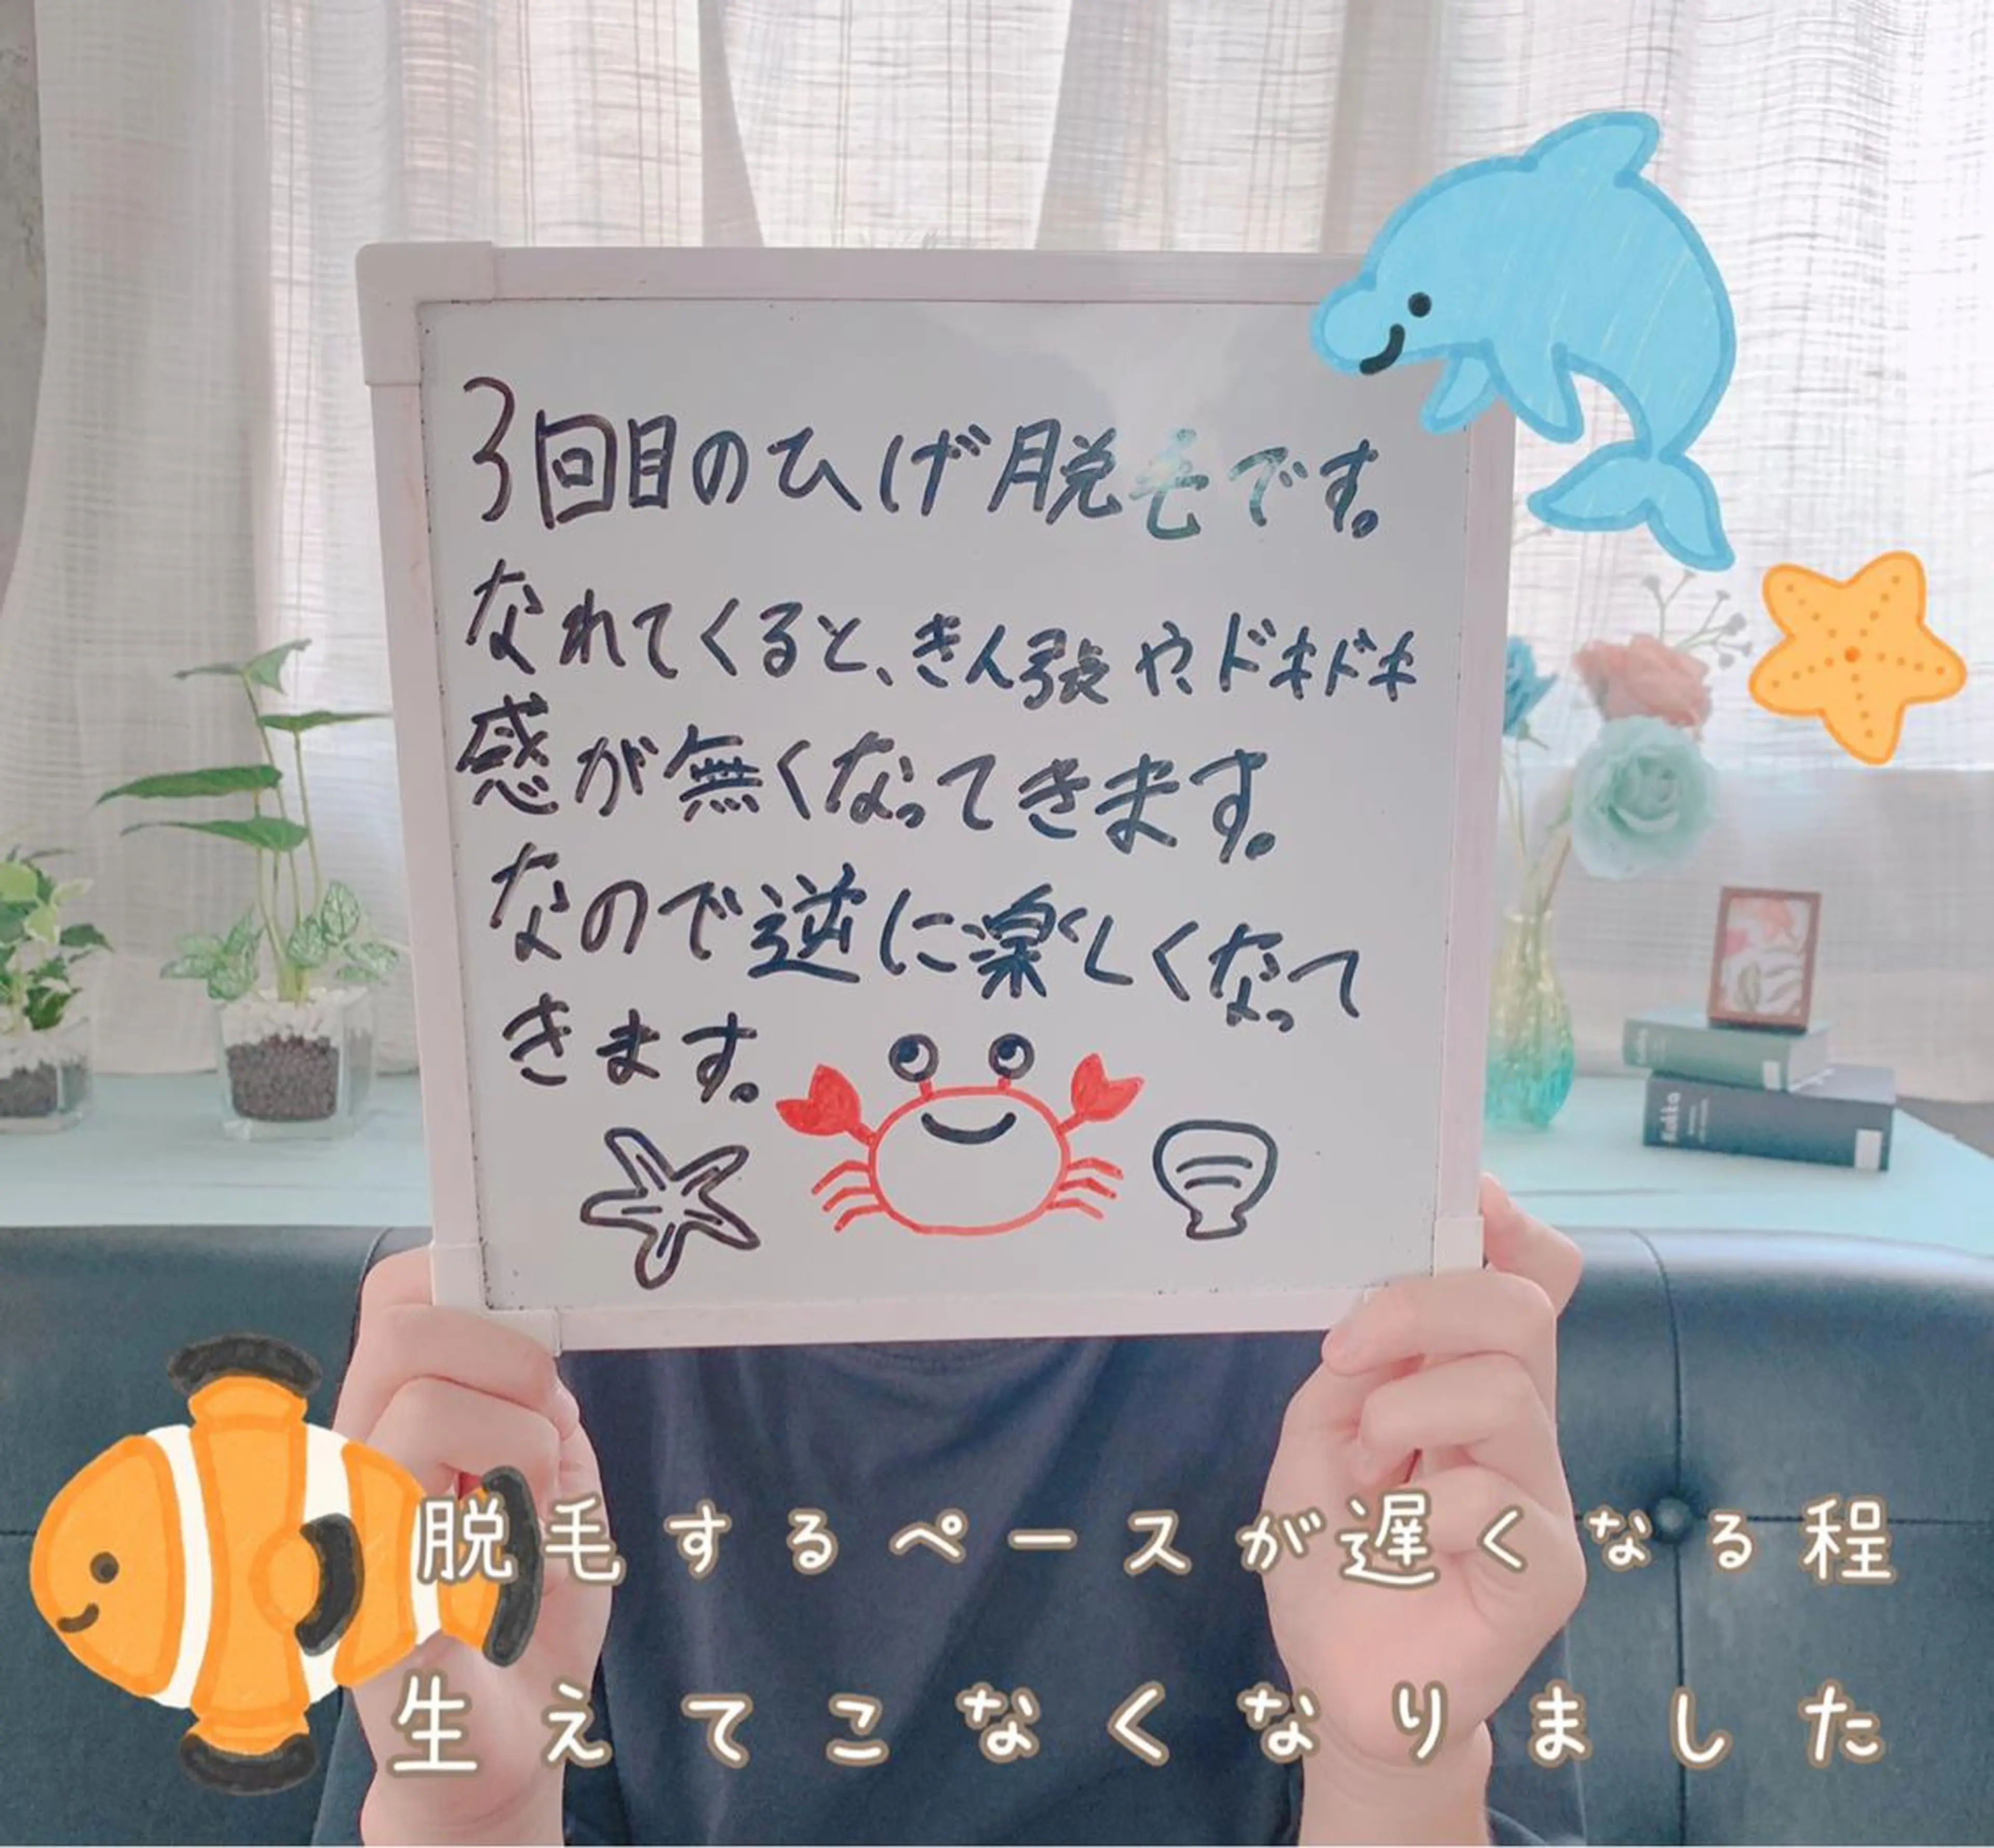 3回目のひげ脱毛です。
なれてくると、きん張や、ドキドキ
感が無くなってきます。
なので逆に楽しくなって
きます。
脱毛するペースが遅くなる程
生えてこなくなりました